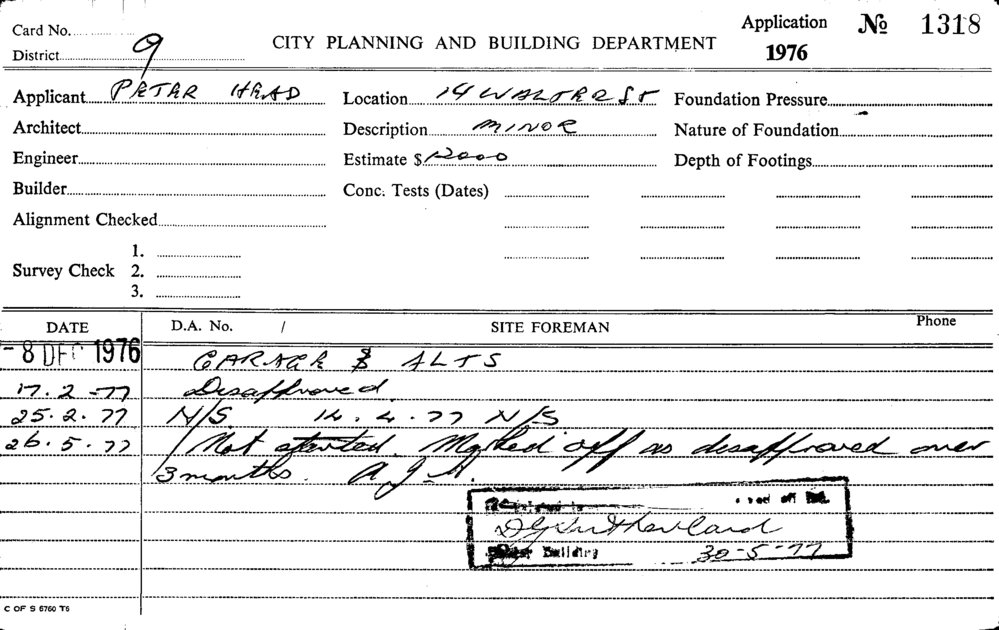 Card No.
Application № 1318
District 9 CITY PLANNING AND BUILDING DEPARTMENT 1976
Applicant PETER HEAD Location 14 WALTER ST Foundation Pressure
Architect Description MINOR Nature of Foundation
Engineer Estimate $ 12000 Depth of Footings
Builder Conc. Tests (Dates)
Alignment Checked
1.
Survey Check 2.
3.
DATE D.A. No. / SITE FOREMAN Phone
- 8 DEC 1976 GARAGE & ALTS
17.2.77 Disapproved
25.2.77 N/S. 14.4.77 N/S
26.5.77 Not started. Marked off as disapproved over
3 months. A.J.
off
D G Sutherland
Building 30-5-77
C OF S 6760 T6